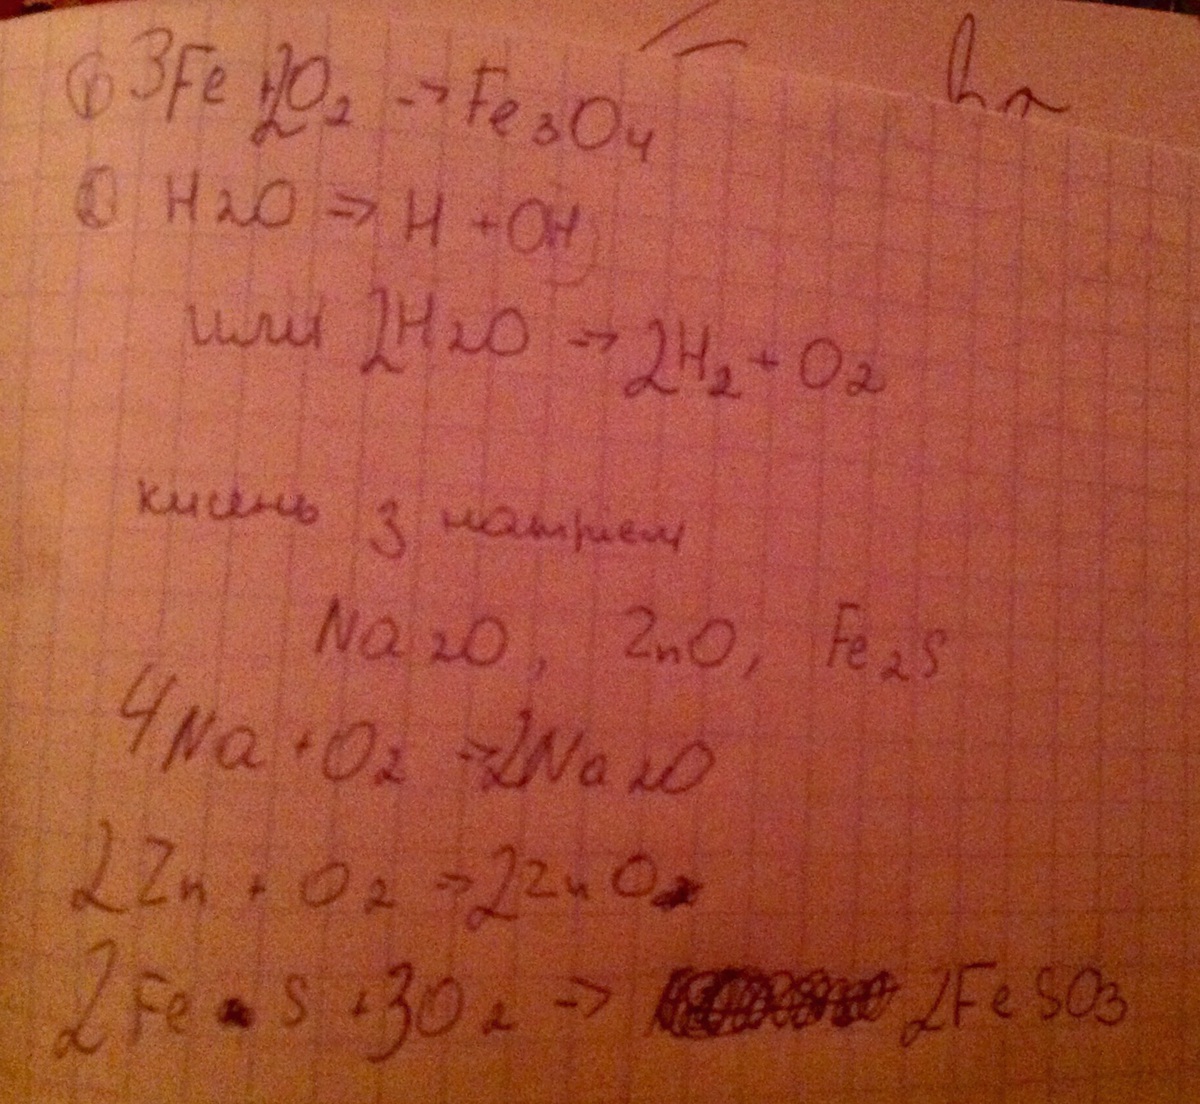 ① 3Fe + 2O₂ → Fe₃O₄
H₂O → H + OH
или 2H₂O → 2H₂ + O₂
кисень з натрієм
Na₂O, ZnO, Fe₂S
4Na + O₂ → 2Na₂O
2Zn + O₂ → 2ZnO
2FeS + 3O₂ → 2FeSO₃